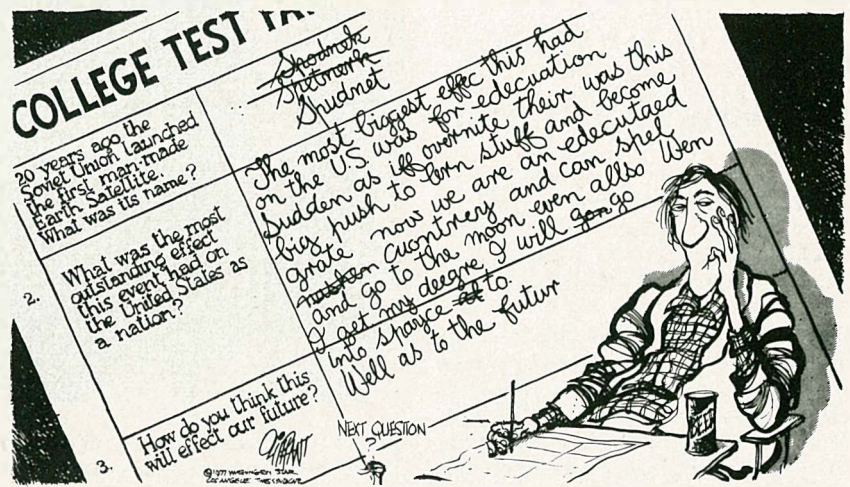 COLLEGE TEST PA
20 years ago the
Soviet Union launched
the first man-made
Earth Satellite.
What was its name?
Shodnek
Spetnerk
Spudnet
2.
What was the most
outstanding effect
this event had on
the United States as
a nation?
The most biggest effec this had
on the U.S. was for edecuation
Sudden as iff overnite their was this
big push to lern stuff and become
grate now we are an edecutaed
cuontrey and can spel
and go to the moon even allso Wen
I get my deegre I will gon go
into spayce at to.
Well as to the futur
3.
How do you think this
will effect our future?
OLIPHANT
©1977 WASHINGTON STAR
LOS ANGELES TIMES SYNDICATE
NEXT QUESTION
?
BEER